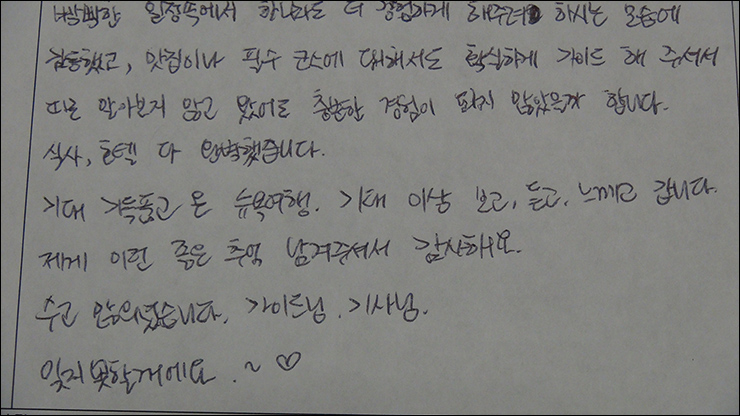 빡빡한 일정속에서 하나라도 더 경험하게 해주려 하시는 모습에
감동했고, 맛집이나 필수 코스에 대해서도 확실하게 가이드 해 주셔서
따로 알아보지 않고 왔어도 충분한 경험이 되지 않았을까 합니다.
식사, 호텔 다 완벽했습니다.
기대 가득품고 온 뉴욕여행. 기대 이상 보고, 듣고, 느끼고 갑니다.
제게 이런 좋은 추억 남겨주셔서 감사해요.
수고 많으셨습니다. 가이드님. 기사님.
잊지 못할거에요. ~ ♡